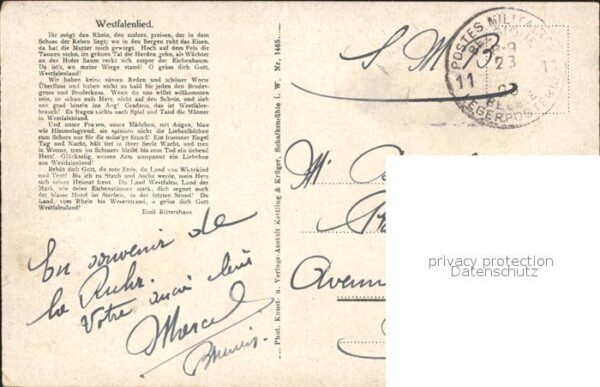 Westfalenlied.
Ihr mögt den Rhein, den stolzen, preisen, der in dem
Schoss der Reben liegt; wo in den Bergen ruht das Eisen,
da hat die Mutter mich gewiegt. Hoch auf dem Fels die
Tannen stehn, im grünen Tal die Herden gehn, als Wächter
an des Hofes Saum reckt sich empor der Eichenbaum.
Da ist's, wo meine Wiege stand! O grüss dich Gott,
Westfalenland!
Wir haben keine süssen Reden und schöner Worte
Überfluss und haben nicht so bald für jeden den Bruder-
gruss und Bruderkuss. Wenn du uns willst willkommen
sein, so schau aufs Herz, nicht auf den Schein, und sieh
uns grad hinein ins Aug! Gradaus, das ist Westfalen-
brauch! Es fragen nichts nach Spiel und Tand die Männer
in Westfalenland.
Und unsre Frauen, unsre Mädchen, mit Augen, blau
wie Himmelsgrund, sie spinnen nicht die Liebesfädchen
zum Scherz nur für die müssige Stund! Ein frommer Engel
Tag und Nacht, hält tief in ihrer Seele Wacht, und treu
in Wonne, treu im Schmerz bleibt bis zum Tod ein liebend
Herz! Glückselig, wessen Arm umspannt ein Liebchen
aus Westfalenland!
Behüt dich Gott, du rote Erde, du Land von Wittekind
und Teut! Bis ich zu Staub und Asche werde, mein Herz
sich seiner Heimat freut. Du Land Westfalen, Land der
Mark, wie deine Eichenstämme stark, dich segnet noch
der blasse Mund im Sterben, in der letzten Stund! Du
Land, wo Rhein bis Weserstrand, o grüss dich Gott
Westfalenland!
Emil Rittershaus
En souvenir de
la Ruhr.
Votre ami
Marcel
Phot. Kunst- u. Verlags-Anstalt Kettling & Krüger, Schalksmühle i. W. Nr. 1465
S M B
POSTES MILITAIRES
8-9
11
23
LEGERPOSTERIJ
M
Avenue
privacy protection
Datenschutz